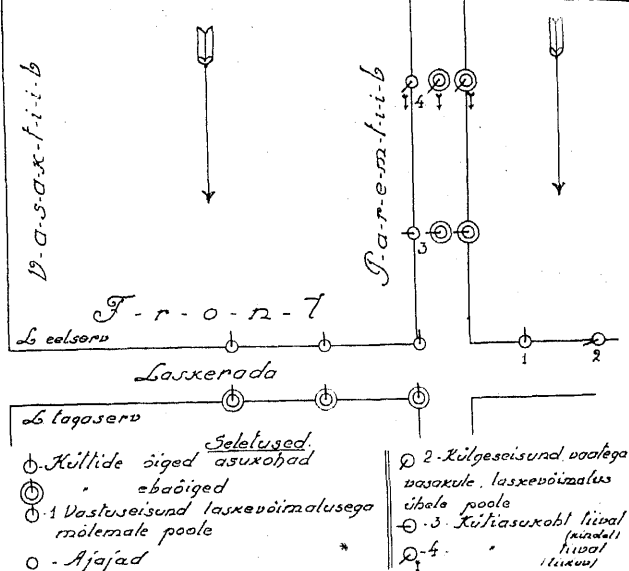 V-a-s-a-k-t-i-i-b
P-a-r-e-m-t-i-i-b
4
3
F-r-o-n-t
L eelserv
1
2
Laskerada
L tagaserv
Seletused.
-Küttide õiged asukohad
" ebaõiged
-1 Vastuseisund laskevõimalusega
mõlemale poole
- Ajajad
2-Külgseisund vaatega
vasakule, laskevõimalus
ühele poole
-3- Kütiasukoht tiival
(kindel)
-4- " tiival
(liikuv)